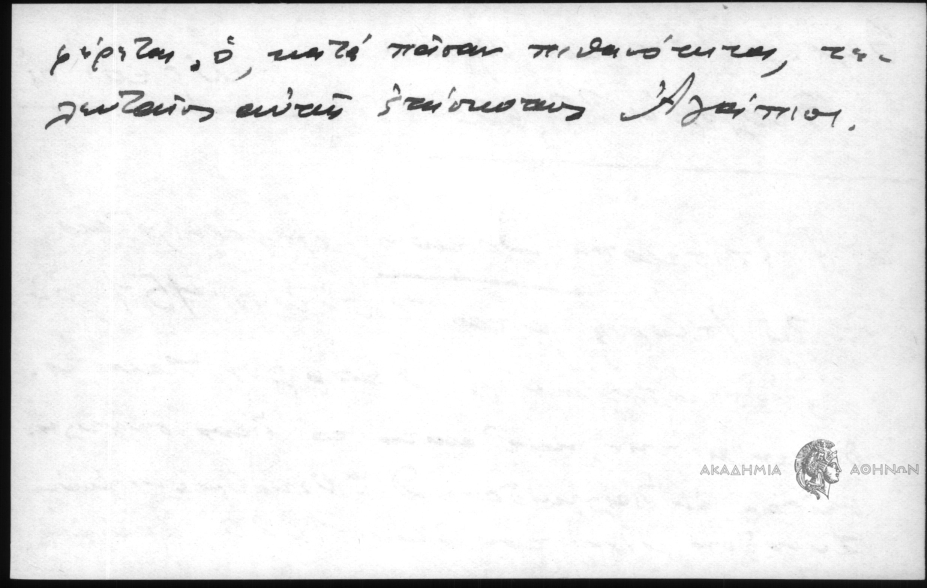 φέρεται, ὁ, κατά πᾶσαν πιθανότητα, τε-
λευταῖος αὐτῆς ἐπίσκοπος Ἀγάπιος.
ΑΚΑΔΗΜΙΑ ΑΘΗΝΩΝ